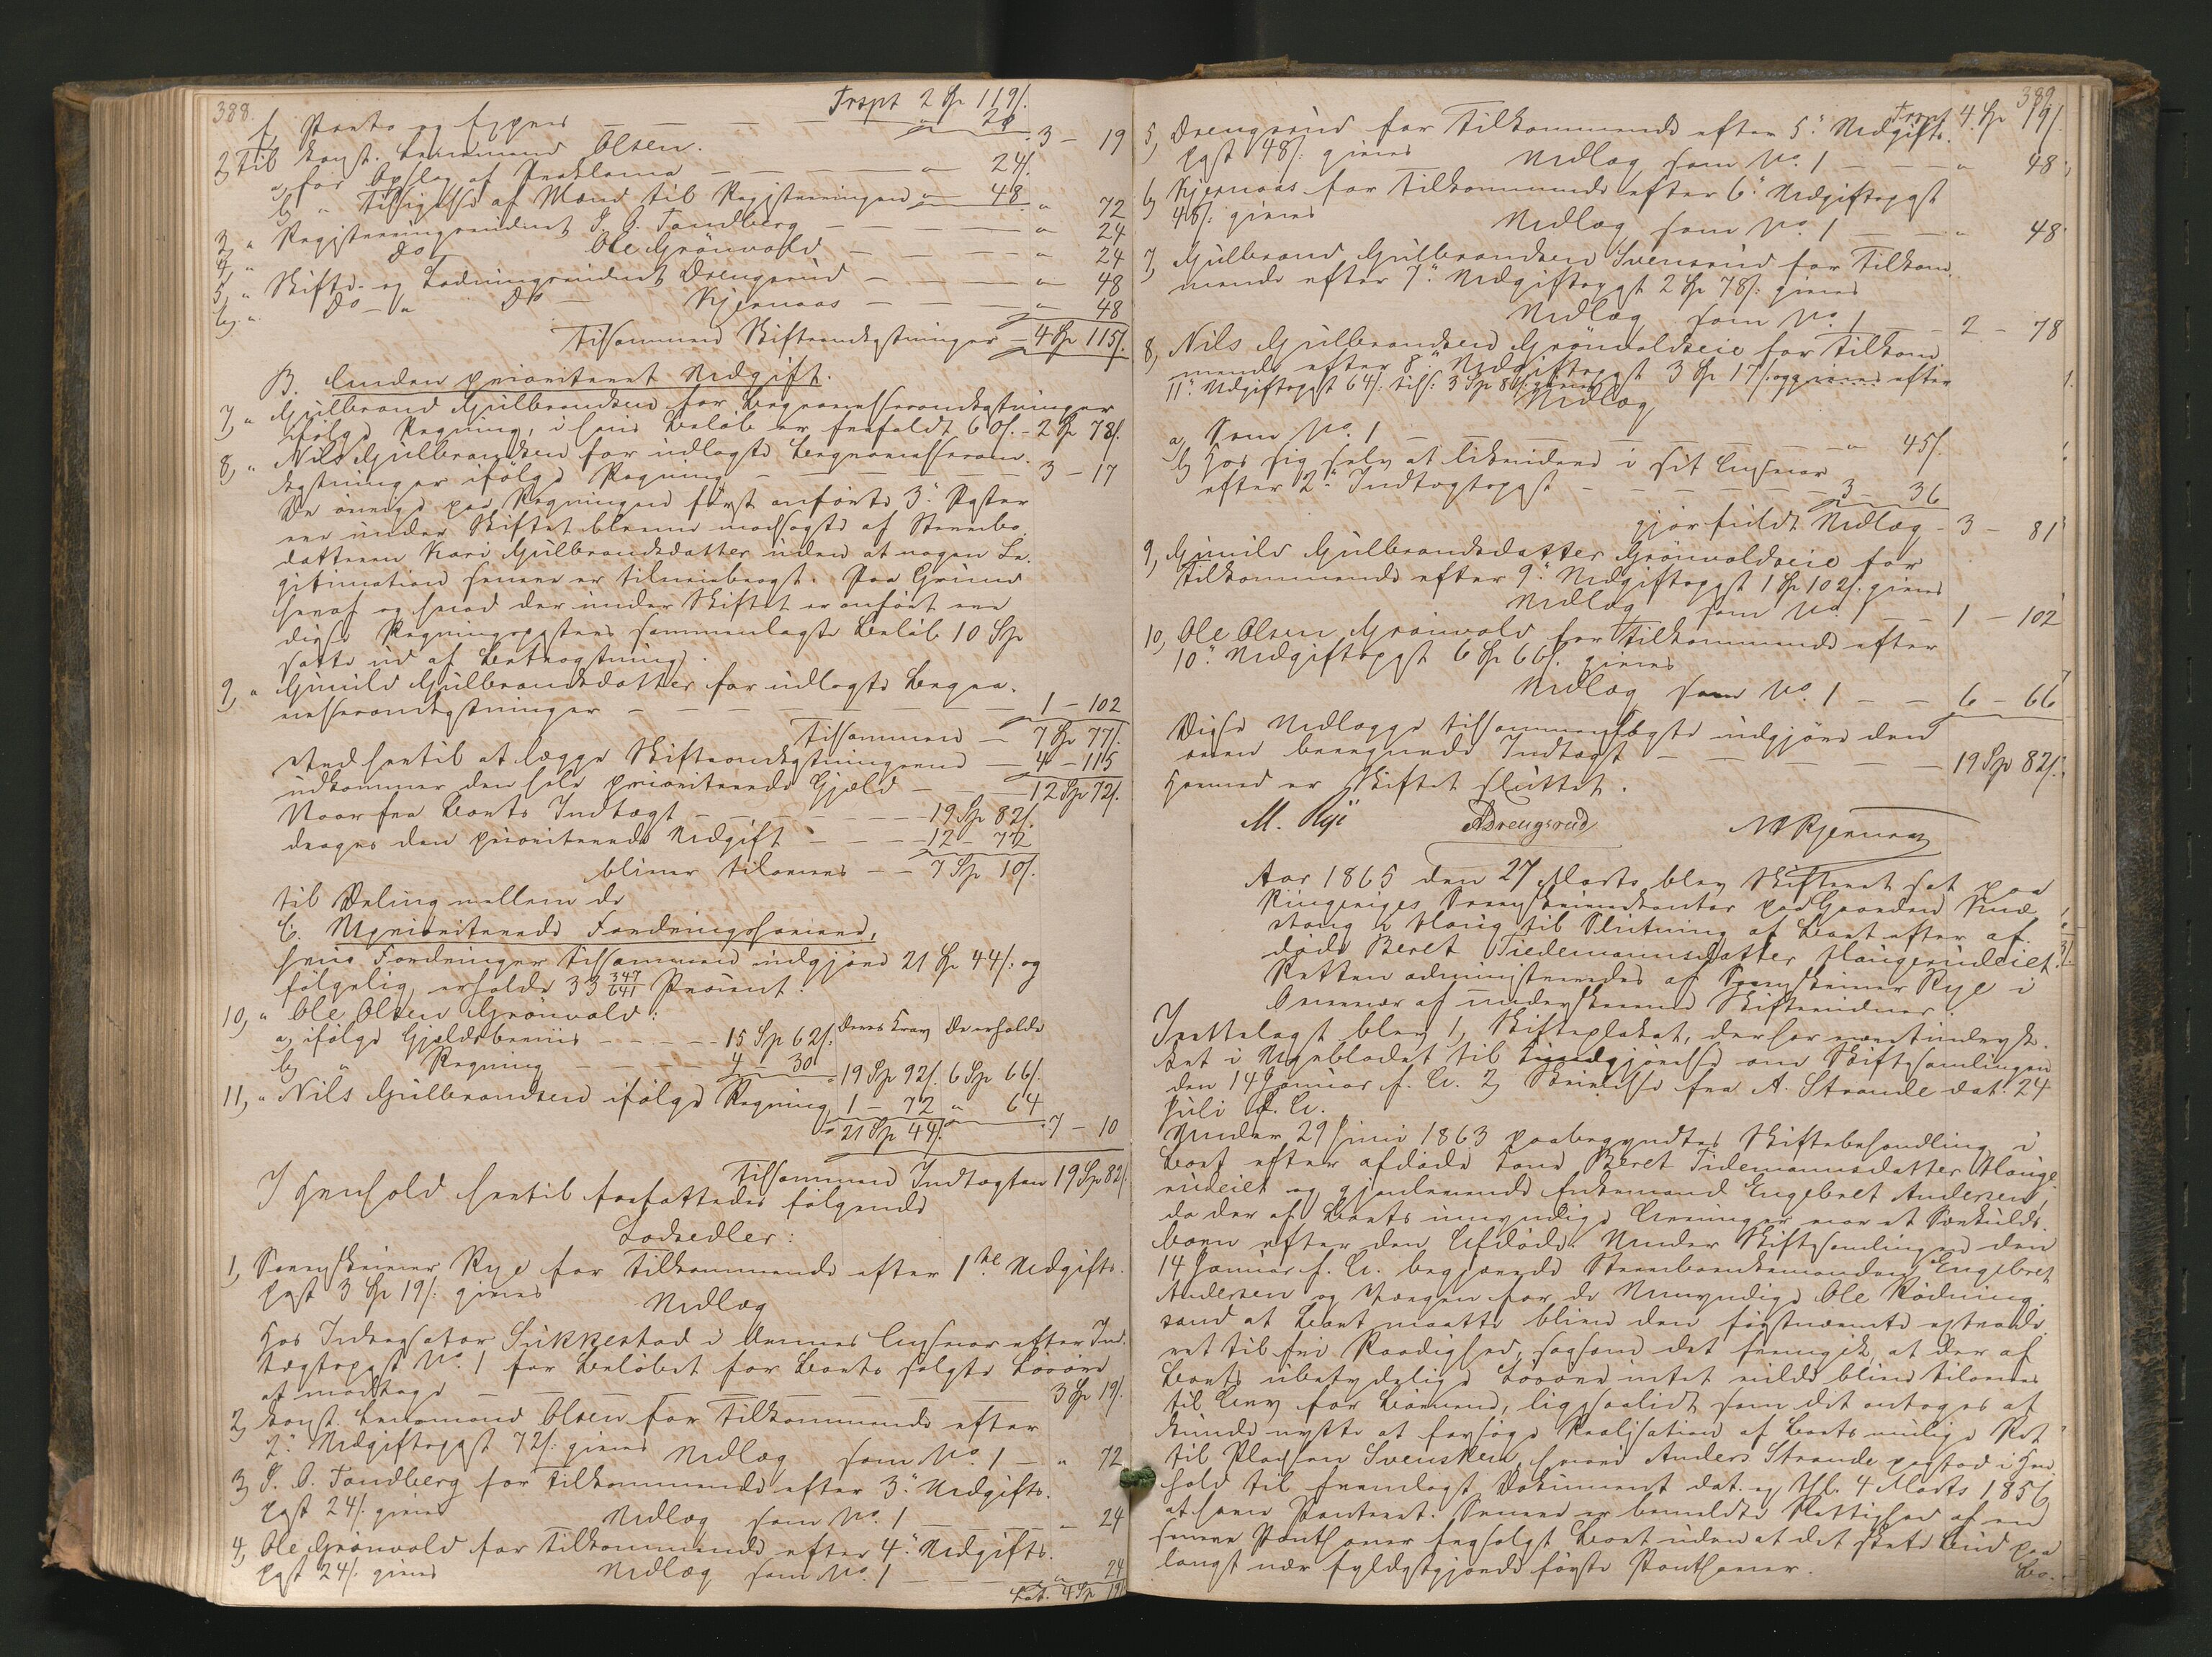 388.
Trspt 2 Sp 119/.
f, Porto og Expres — — — — — „ 20 3 – 19
2, Til const. Lensmand Olsen.
a, for Opslag af Proklama — — — — „ 24/.
b, „ Tilsigelse af Mænd til Registreringen „ 48 „ 72
3, „ Registreringsvidnet G. O. Tandberg — — — „ 24
4, „ do Ole Grönvold — — — „ 24
5, „ Skifte- og Lodningsvidnet Drengsrud — — „ 48
6, „ do – „ do – Kjernaas — — „ 48
Tilsammen Skifteomkostninger – 4 Sp 115/.
B. Anden prioriteret Udgift.
7, „ Gulbrand Gulbrandsen for Begravelsesomkostninger
ifølge Regning, i hvis Beløb er frafaldt 60/. – 2 Sp 78/.
8, „ Nils Gulbrandsen for udlagte Begravelsesom-
kostninger ifølge Regning — — — — 3 – 17
De øvrige paa Regningen først anførte 3de Poster
ere under Skiftet blevne modsagte af Stervbo-
datteren Kari Gulbrandsdatter uden at nogen Le-
gitimation senere er tilveiebragt. Paa Grund
heraf og hvad der under Skiftet er anført ere
disse Regningsposters sammenlagte Beløb 10 Sp
satte ud af Betragtning.
9, „ Gunild Gulbrandsdatter for udlagte Begra-
velsesomkostninger — — — — — 1 – 102
Tilsammen — 7 Sp 77/.
Ved hertil at lægge Skifteomkostningerne — 4 – 115
udkommer den hele prioriterede Gjæld — — 12 Sp 72/.
Naar fra Boets Indtægt — — — — 19 Sp 82/.
drages den prioriterede Udgift — — — 12 – 72
bliver tilovers — — 7 Sp 10/.
til Deling mellem de
C. Uprioriterede Fordringshavere,
hvis Fordringer tilsammen udgjøre 21 Sp 44/. og
følgelig erholde 33 347/641 Procent.
10, „ Ole Olsen Grönvold: Deres Krav De erholde
a, ifølge Gjældsbeviis — — — 15 Sp 62/.
b, „ Regning — — — 4 – 30 19 Sp 92/. 6 Sp 66/.
11, „ Nils Gulbrandsen ifølge Regning 1 – 72 „ 64
21 Sp 44/. 7 – 10
Tilsammen Indtægten 19 Sp 82/.
I Henhold hertil forfattedes følgende
Lodsedler:
1, Sorenskriver Rye for Tilkommende efter 1ste Udgifts-
post 3 Sp 19/. gives
Udlæg
Hos Inkassator Sukkestad i Avances Ansvar efter Ind-
tægtspost No. 1 for Beløbet for Boets solgte Løsøre
at modtage — — — — — — — 3 Sp 19/.
2, const. Lensmand Olsen for Tilkommende efter
2den Udgiftspost 72/. gives Udlæg som No. 1 – „ 72
3, G. O. Tandberg for Tilkommende efter 3die Udgifts-
post 24/. gives Udlæg som No. 1 — — „ 24
4, Ole Grönvold for Tilkommende efter 4de Udgifts-
post 24/. gives Udlæg som No. 1 — — „ 24
Lat. 4 Sp 19/.
389
Trspt 4 Sp 19/.
5, Drengsrud for Tilkommende efter 5te Udgifts-
post 48/. gives Udlæg som No. 1 — — „ 48
6, Kjernaas for Tilkommende efter 6te Udgiftspost
48/. gives Udlæg som No. 1 — — „ 48
7, Gulbrand Gulbrandsen Svensrud for Tilkom-
mende efter 7de Udgiftspost 2 Sp 78/. gives
Udlæg som No. 1 — 2 – 78
8, Nils Gulbrandsen Grönvoldseie for Tilkom-
mende efter 8de Udgiftspost 3 Sp 17/. og efter
11te Udgiftspost 64/. tils: 3 Sp 81/. gives
Udlæg
a, Som No. 1 — — — — — — „ 45/.
b, Hos sig selv at likvidere i sit Ansvar
efter 2den Indtægtspost — — — — 3 – 36
gjør fuldt Udlæg – 3 – 81
9, Gunild Gulbrandsdatter Grönvoldseie for
Tilkommende efter 9de Udgiftspost 1 Sp 102/. gives
Udlæg som No. 1 — — 1 – 102
10, Ole Olsen Grönvold for Tilkommende efter
10de Udgiftspost 6 Sp 66/. gives
Udlæg som No. 1 — — 6 – 66
Disse Udlægge tilsammenlagte udgjøre den
oven beregnede Indtægt — — — — 19 Sp 82/.
Hermed er Skiftet sluttet.
M. Rye ADrengsrud NKjernaas
Aar 1865 den 27 Marts blev Skifteret sat paa
Ringeriges Sorenskriverkontor paa Gaarden Knæ-
stang i Haug til Slutning af Boet efter af-
døde Beret Tiedemannsdatter Haugerudeiet.
Retten administreredes af Sorenskriver Rye i
Overvær af underskrevne Skiftevidner.
Irettelagt blev 1, Skifteplakat, der har været indryk-
ket i Ugebladet til Kundgjørelse om Skiftesamlingen
den 14 Januar f. A. 2, Skrivelse fra A. Strande dat. 24
Juli f. A.
Under 29 Juni 1863 paabegyndtes Skiftebehandling i
Boet efter afdøde Kone Beret Tidemannsdatter Hauge-
rudeiet og gjenlevende Enkemand Engebret Andersen,
da der af Boets umyndige Arvinger var et Særkulds-
barn efter den Afdøde. Under Skiftesamlingen den
14 Januar f. A. begjærede Stervboenkemanden Engebret
Andersen og Værgen for de Umyndige Ole Rödning-
sand at Boet maatte blive den førstnævnte extrade-
ret til fri Raadighed, saasom det fremgik, at der af
Boets ubetydelige Løsøre intet vilde blive tilovers
til Arv for Børnene, ligesaalidt som det antoges at
kunde nytte at forsøge Realisation af Boets mulige Ret
til Pladsen Svensken, hvori Anders Strande paastod i Hen-
hold til fremlagt Dokument dat. og thl. 4 Marts 1856
at have Panteret. Senere er bemeldte Rettighed af en
senere Panthaver frasolgt Boet uden at det skete Bud paa
langt nær fyldestgjorde første Panthaver.
Bo-